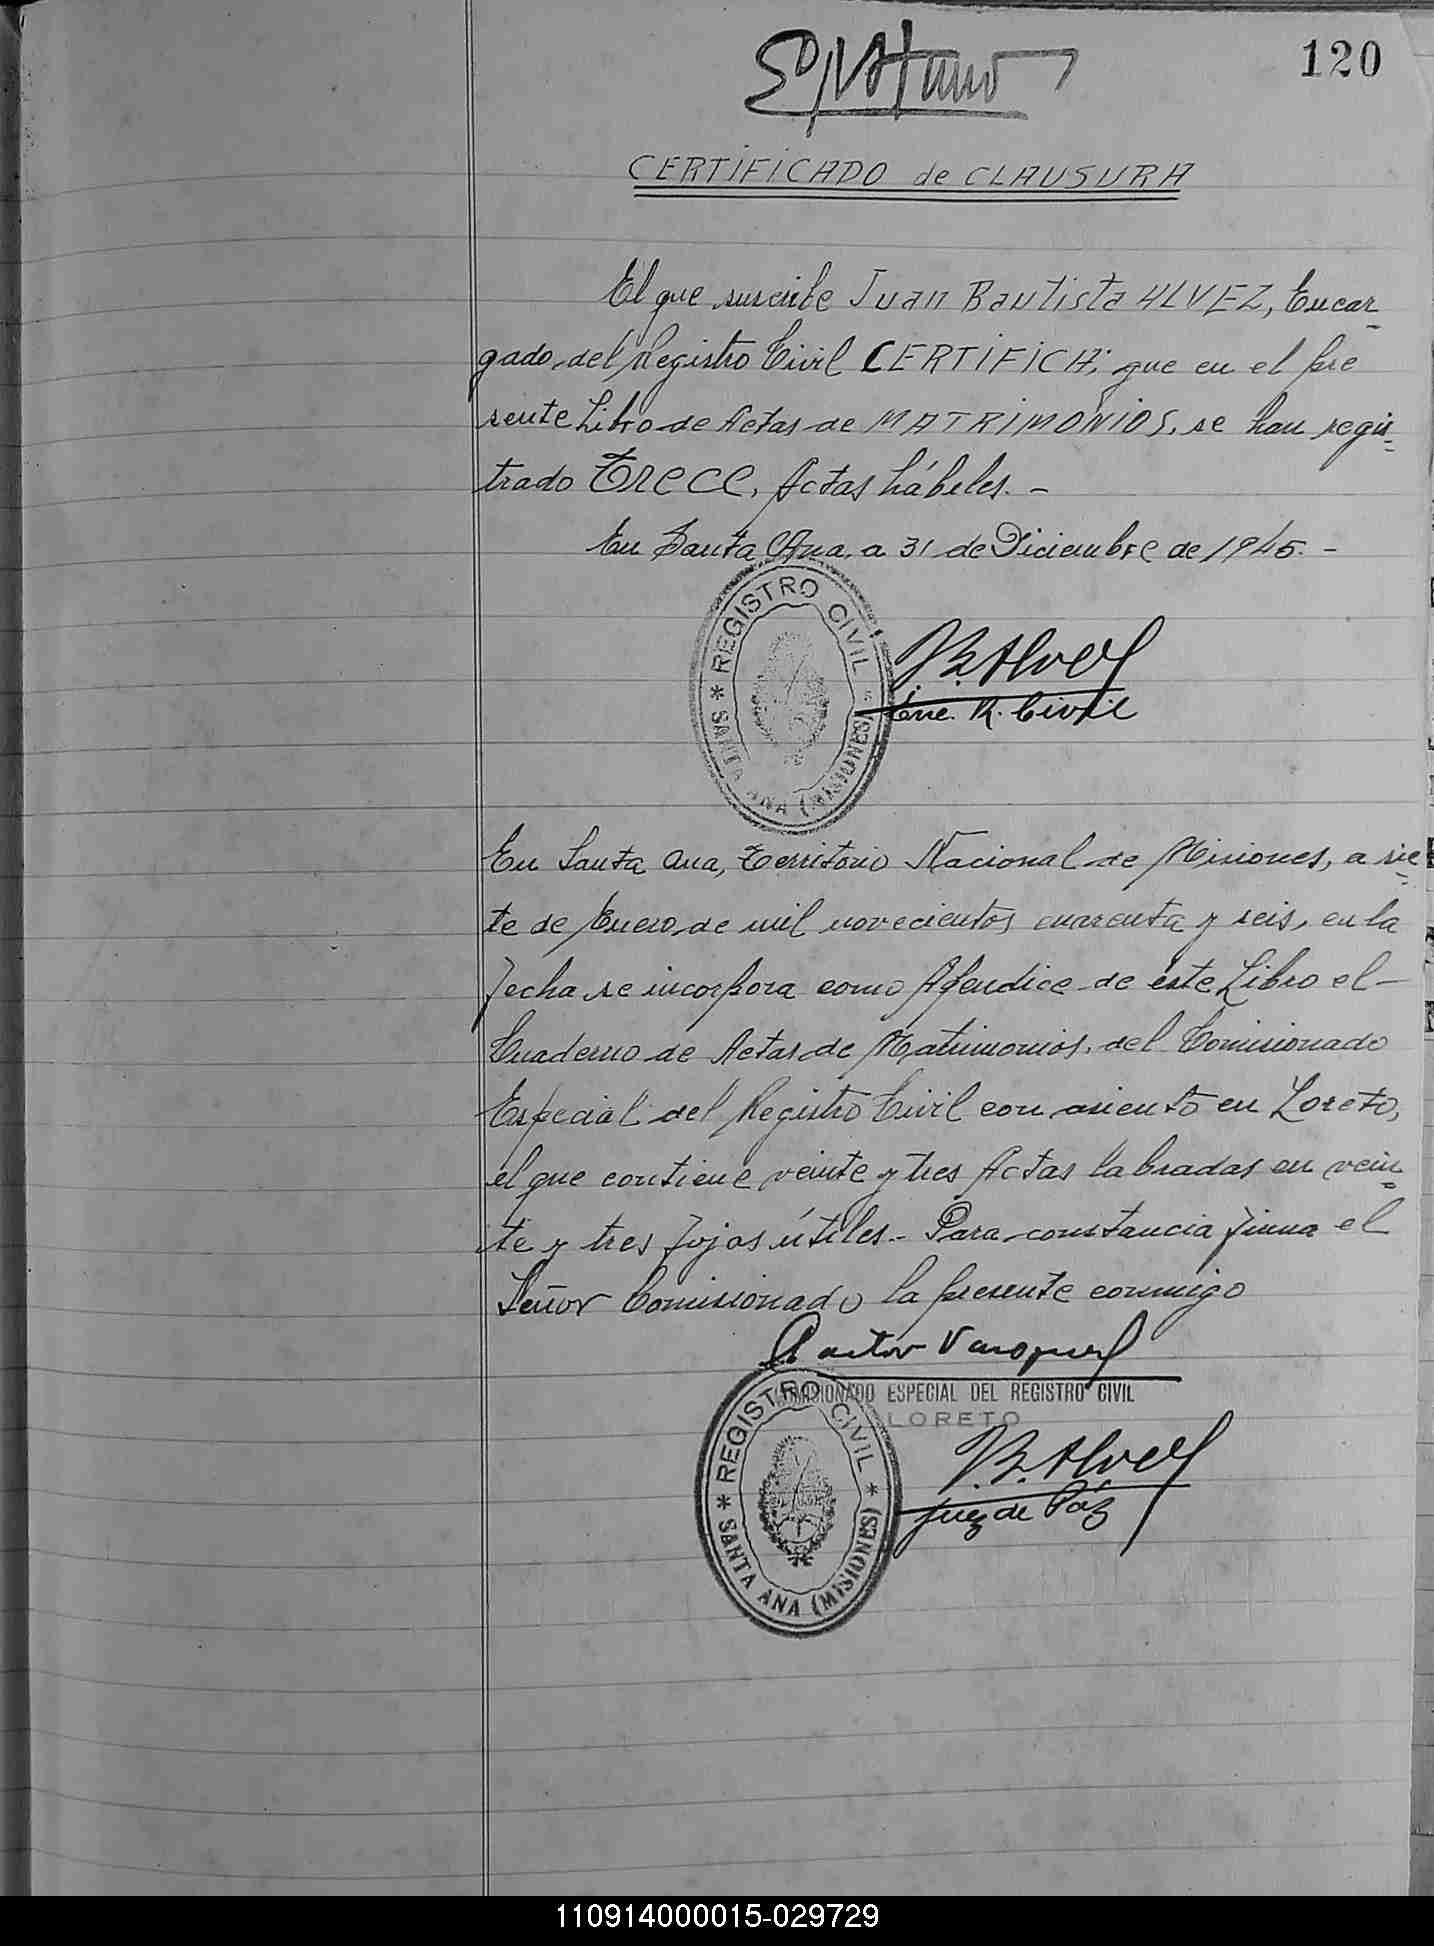 120
CERTIFICADO de CLAUSURA
El que suscribe Juan Bautista ALVEZ, Encar-
gado del Registro Civil CERTIFICA; que en el pre
sente Libro de Actas de MATRIMONIOS, se han regis-
trado TRECE, Actas hábiles. -
En Santa Ana, a 31 de Diciembre de 1945. -
* REGISTRO CIVIL
SANTA ANA (MISIONES)
J.B. Alvez
Enc. R. Civil
En Santa Ana, Territorio Nacional de Misiones, a sie-
te de Enero de mil novecientos cuarenta y seis, en la
fecha se incorpora como Apendice de este Libro el -
Cuaderno de Actas de Matrimonios, del Comisionado
Especial del Registro Civil con asiento en Loreto,
el que contiene veinte y tres Actas labradas en vein-
te y tres fojas útiles. - Para constancia firma el
Señor Comisionado la presente conmigo
Pastor Vasquez
COMISIONADO ESPECIAL DEL REGISTRO CIVIL
LORETO
* REGISTRO CIVIL *
SANTA ANA (MISIONES)
J.B. Alvez
Juez de Páz
110914000015-029729